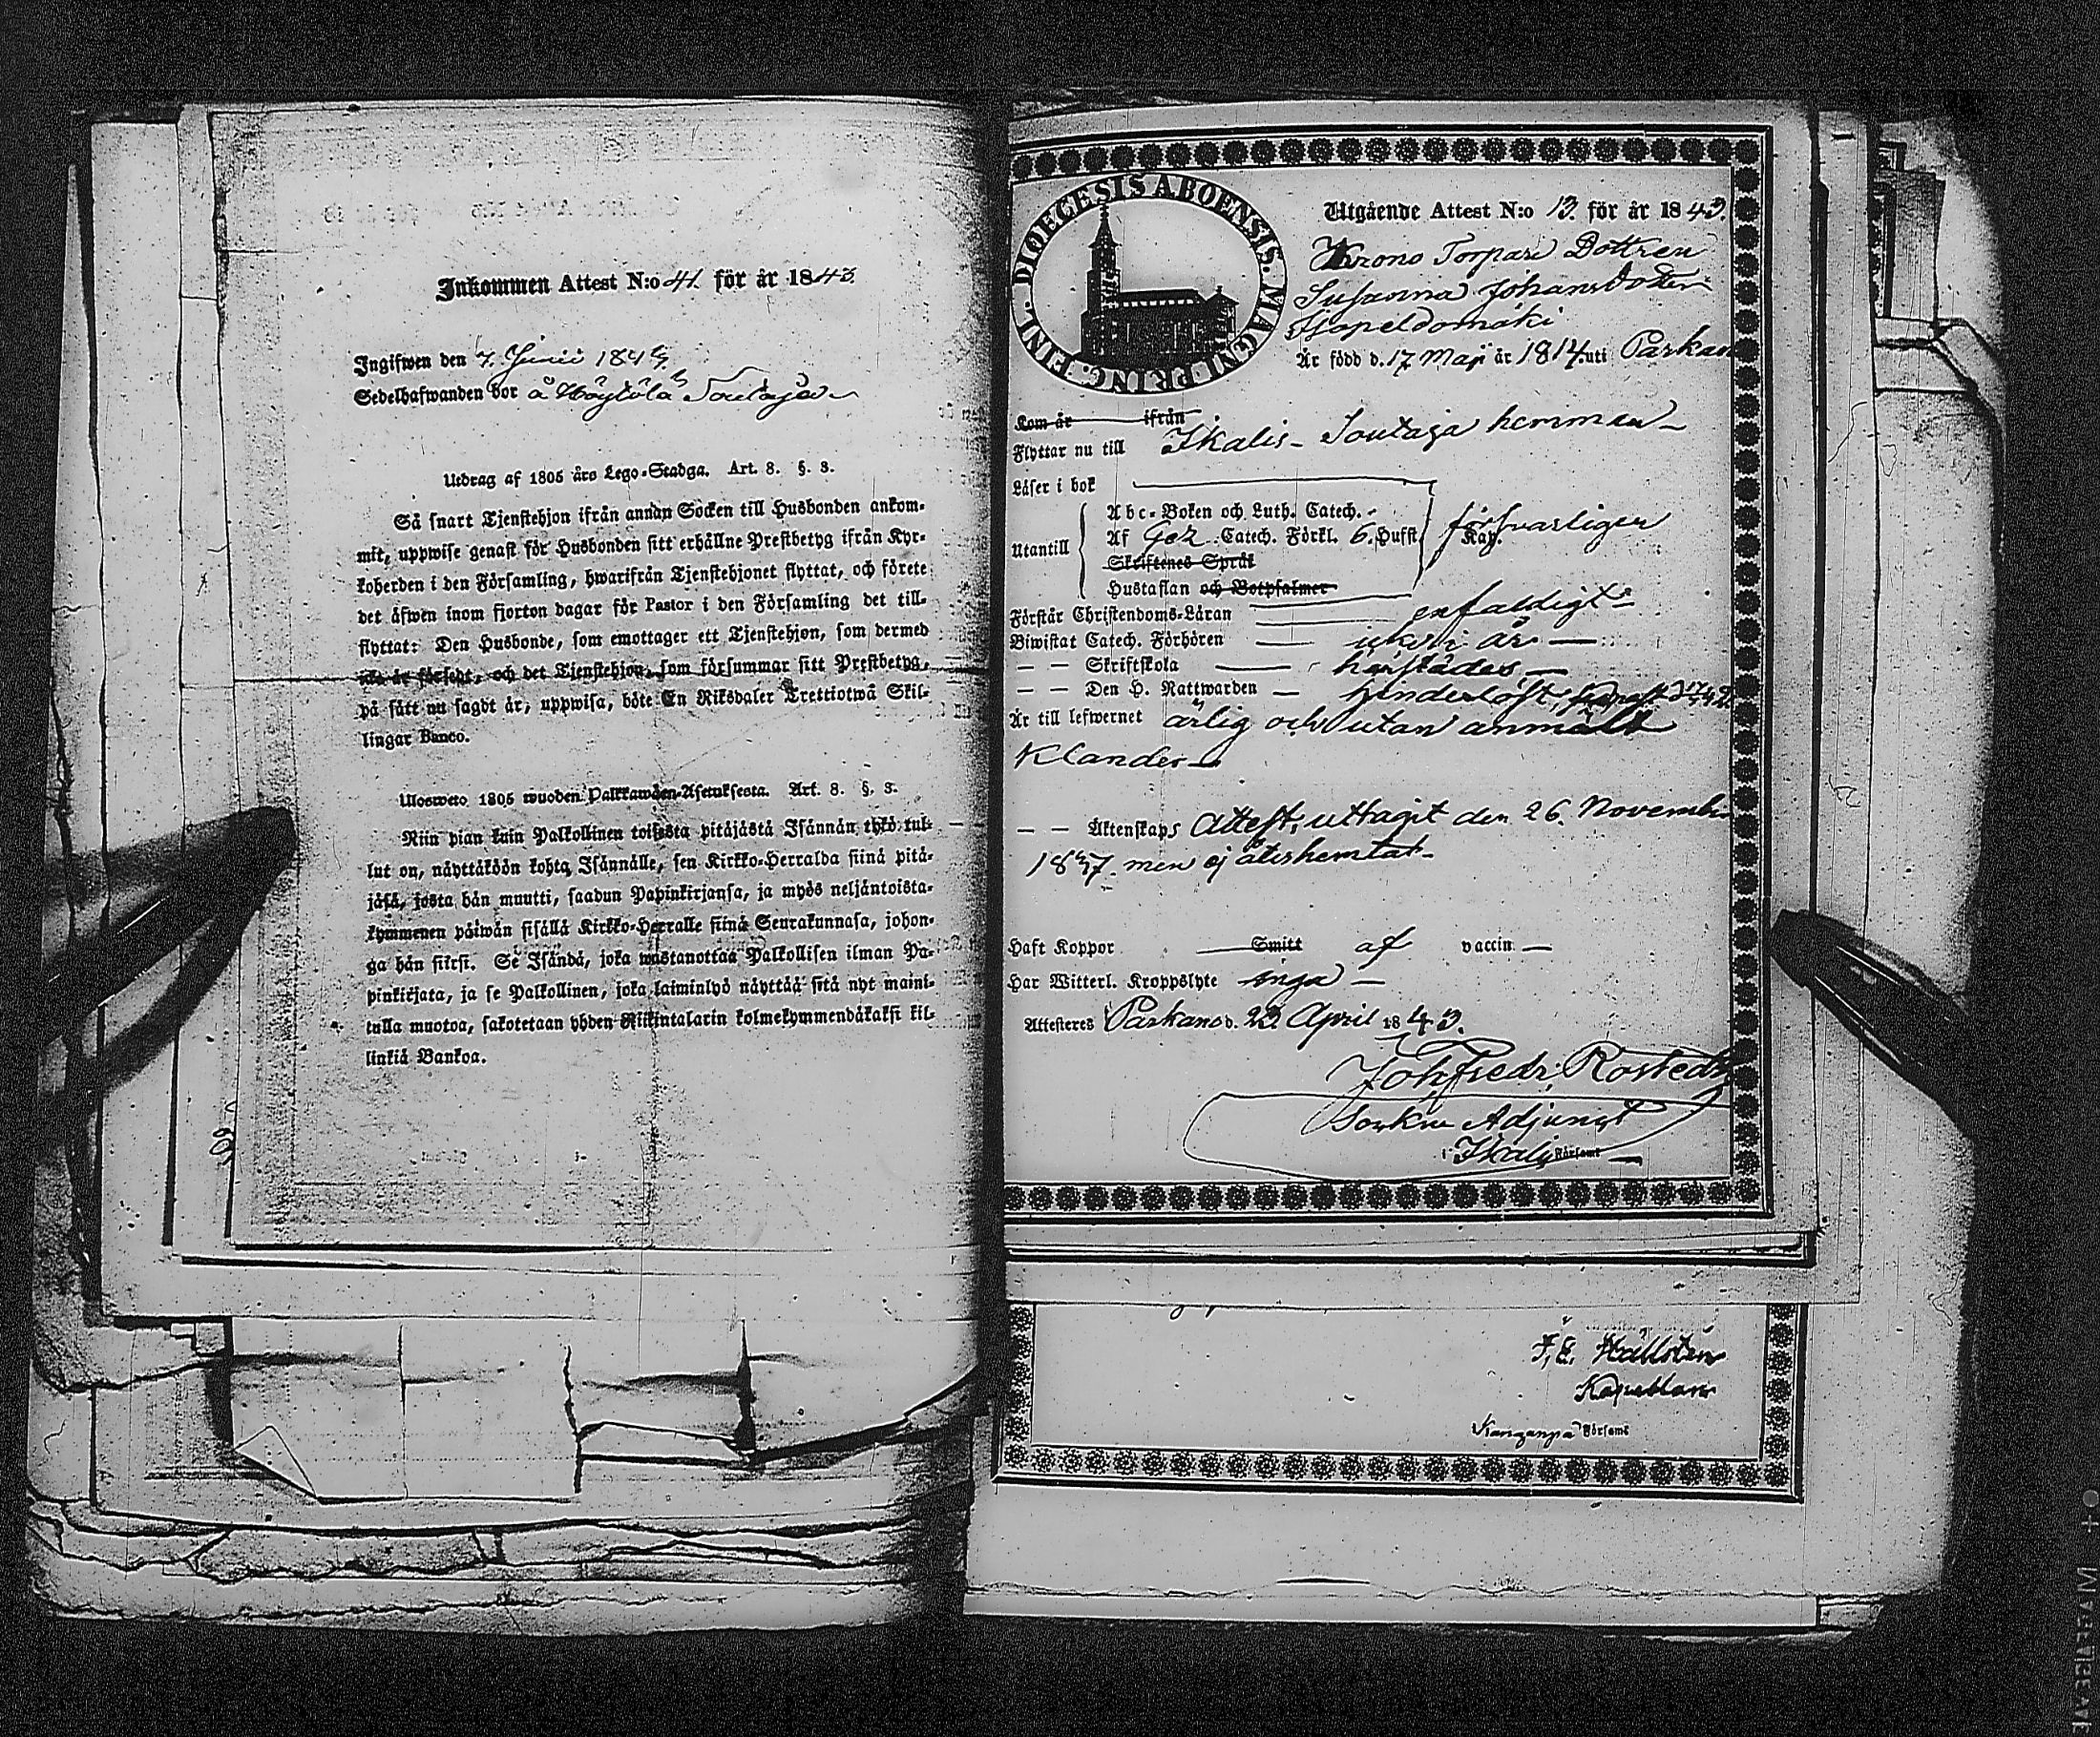 Inkommen Attest N:o 41. för år 1843.
Ingifwen den 7. Junii 1843.
Sedelhafwanden bor å Höytölä Soutaja
Utdrag af 1805 års Lego-Stadga. Art. 8. §. 3.
Så snart Tjenstehjon ifrån annan Socken till Husbonden ankom-
mit, uppwise genast för Husbonden sitt erhållne Prestbetyg ifrån Kyr-
koherden i den Församling, hwarifrån Tjenstehjonet flyttat, och förete
det äfwen inom fjorton dagar för Pastor i den Församling det till-
flyttat: Den Husbonde, som emottager ett Tjenstehjon, som dermed
icke är försedt, och det Tjenstehjon, som försummar sitt Prestbetyg,
på sätt nu sagdt är, uppwisa, böte En Riksdaler Trettiotwå Skil-
lingar Banco.
Ulosweto 1805 wuoden Palkkawäen-Asetuksesta. Art. 8. §. 3.
Niin pian kuin Palkollinen toisesta pitäjästä Isännän tykö tul-
lut on, näyttäköön kohta Isännälle, sen Kirkko-Herralda siinä pitä-
jäsä, josta hän muutti, saadun Papinkirjansa, ja myös neljäntoista-
kymmenen päiwän sisällä Kirkko-Herralle siinä Seurakunnasa, johon-
ga hän siirsi. Se Isändä, joka wastanottaa Palkollisen ilman Pa-
pinkirjata, ja se Palkollinen, joka laiminlyö näyttää sitä nyt maini-
tulla muotoa, sakotetaan yhden Riikintalarin kolmekymmendäkaksi kil-
linkiä Bankoa.
DIOECESIS ABOENSIS. MAGNI PRING. FINL.
Utgående Attest N:o 13. för år 1843.
Krono Torpare Dottren
Susanna Johansdotter
är född d. 17 Maji år 1814 uti Parkano
Kom år ifrån
Flyttar nu till Ikalis Soutaja hemman
Läser i bok
Utantill
Abc-Boken och Luth. Catech.
Af Gez. Catech. Förkl. 6. Hufst. Kap. försvarligen
Skriftenes Språk
Hustaflan och Botpsalmer
Förstår Christendoms-Läran enfaldigt
Biwistat Catech. Förhören
— — Skriftskola härstädes
— — Den H. Nattwarden
Är till lefwernet ärlig och utan anmält
Klander
— — Äktenskaps Attest, uttagit den 26. November
1837. men ej återhemtat
Haft Koppor Smitt af vaccin.
Har Witterl. Kroppslyte inga
Attesteres Parkano d. 23 April 1843.
Joh Fredr. Rostedt
Sockne Adjunct
i Ikalis Församl
F. E. Hällsten
Kapellan
Kanganpä Församl